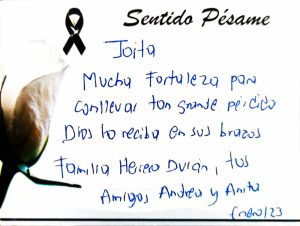 Sentido Pésame
Joita
Mucha Fortaleza para
conllevar tan grande pérdida
Dios lo reciba en sus brazos
Familia Herero Durán, tus
Amigos Andrea y Anita
Enero/23